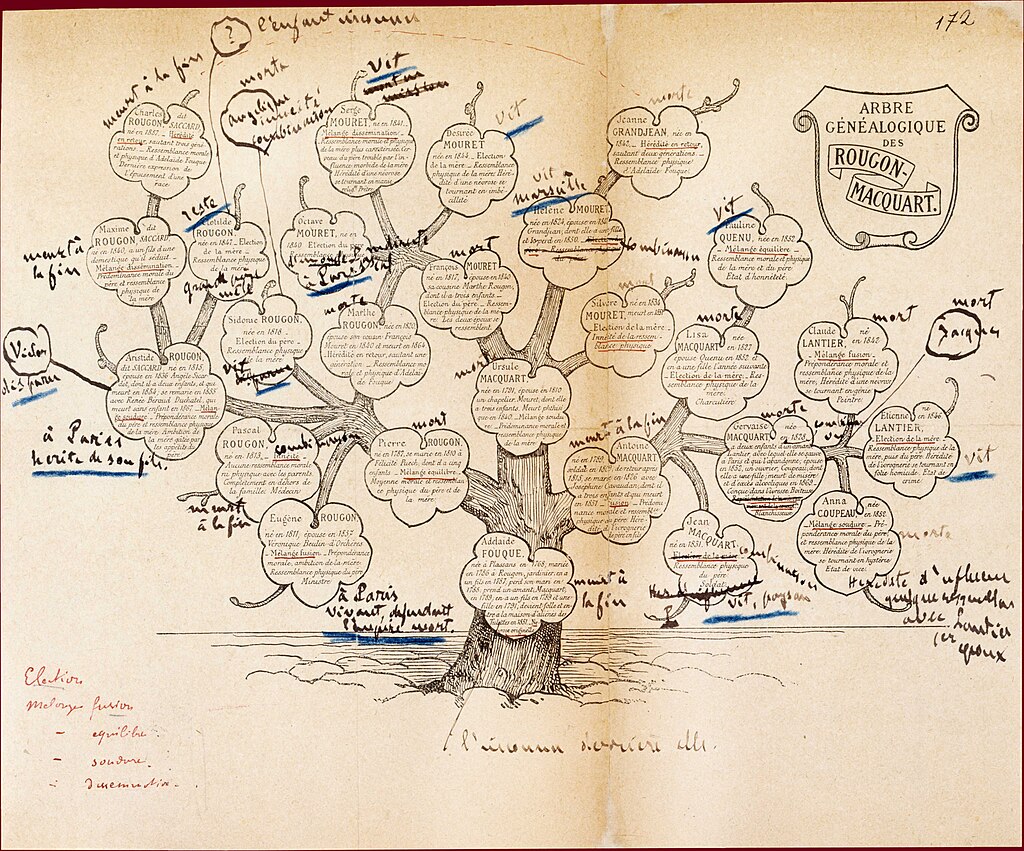 172
ARBRE
GÉNÉALOGIQUE
DES
ROUGON-
MACQUART.
?
l'enfant inconnu
meurt à la fin
Charles dit
ROUGON, SACCARD,
né en 1857. Hérédité
en retour, sautant trois géné
rations. Ressemblance morale
et physique d'Adelaïde Fouque.
Dernière expression de
l'épuisement d'une
race
morte
Angélique
Vit
Serge
MOURET, né en 1841.
Mélange dissémination.
Ressemblance morale et physique de
la mère plus caractérisée. Cer
veau du père troublé par l'in
fluence morbide de la mère
Hérédité d'une névrose
se tournant en
Prêtre
vit
Désirée
MOURET
née en 1844. Election
de la mère. Ressemblance
physique de la mère. Héré
dité d'une névrose se
tournant en imbé
cillité
morte
Jeanne
GRANDJEAN, née en
1842. Hérédité en retour,
sautant deux générations.
Ressemblance physique
d'Adelaïde Fouque
meurt à
la fin
Maxime dit
ROUGON, SACCARD,
né en 1840, a un fils d'une
domestique qu'il séduit.
Mélange dissémination.
Prédominance morale du
père et ressemblance
physique de
la mère
reste
Clotilde
ROUGON,
née en 1847. Election
de la mère.
Ressemblance physique
de la mère
Octave
MOURET, né en
1840. Election du père
à Paris
vit
Marseille
Hélène MOURET,
née en 1824, épouse en
Grandjean, dont elle a une fille
et le perd en 1850.
Combinaison
vit
Pauline
QUENU, née en 1852.
Mélange équilibre.
Ressemblance morale et physique
de la mère et du père.
Etat d'honnêteté
mort
François
MOURET
né en 1817, épouse en 1840
sa cousine Marthe Rougon,
dont il a trois enfants.
Election du père. Ressem-
blance physique de la
mère. Les deux époux se
ressemblent
mort
Silvère né en 1834
MOURET, meurt en 1851
Election de la mère.
Innéité de la ressem
blance physique
Sidonie
ROUGON,
née en 1818.
Election du père.
Ressemblance physique
de la mère
morte
Marthe
ROUGON, née en 1820,
épouse son cousin François
Mouret en 1840 et meurt en 1864
Hérédité en retour, sautant une
génération. Ressemblance morale
et physique d'Adelaïde
Fouque
morte
Lisa
MACQUART née en 1827
épouse Quenu en 1852, et
en a une fille l'année suivante
Election de la mère. Res
semblance physique de la
mère.
Charcutière
mort
Claude né
LANTIER, en 1842.
Mélange fusion.
Prépondérance morale et
ressemblance physique de la
mère. Hérédité d'une névrose
se tournant en génie
Peintre
mort
Jacques
Victor
disparu
Aristide ROUGON,
dit SACCARD, né en 1815,
épouse en 1836 Angèle Sicar
dot, dont il a deux enfants, et qui
meurt en 1854; se remarie en 1855
avec Renée Béraud Duchatel, qui
meurt sans enfant en 1867. Mélan
ge soudure. Prépondérance morale
du père et ressemblance
physique de la
mère. Ambition de
la mère gâtée par
les appétits du
père
à Paris
hérite de son fils.
mort
Ursule
MACQUART,
née en 1791, épouse en 1810
un chapelier, Mouret, dont elle
a trois enfants. Meurt phthisi
que en 1840. Mélange soudu
re. Prédominance morale
et ressemblance
physique de la
mère
Pascal
ROUGON
né en 1813. Innéité
Aucune ressemblance morale
ni physique avec les parents.
Complètement en dehors de
la famille. Médecin
Combinaison
meurt
à la fin
mort
Pierre ROUGON,
né en 1787, se marie en 1810 à
Félicité Puech, dont il a cinq
enfants. Mélange équilibre.
Moyenne morale et ressemblan
ce physique du père et de
la mère
meurt à la fin
Antoine
MACQUART
né en 1789,
soldat en 1809, de retour après
1815, se marie en 1826 avec
Joséphine Gavaudan, dont il
a trois enfants et qui meurt
en 1851. Fusion. Prédomi
nance morale et ressemblance
physique du père. Héré
dité d'ivrognerie
de père en fils
morte
Gervaise née
MACQUART en 1828,
a deux enfants d'un amant,
Lantier, avec lequel elle se sauve à
Paris et qui l'abandonne, épouse en
1852, un ouvrier, Coupeau, dont
elle a une fille; meurt de misère
et d'accès alcooliques en 1869.
Conçue dans l'ivresse. Boiteuse
Blanchisseuse
Etienne né en 1846
LANTIER,
Election de la mère.
Ressemblance physique de la
mère, puis du père. Hérédité
de l'ivrognerie se tournant en
folie homicide. Etat de
crime.
vit
Eugène ROUGON,
né en 1811, épouse en 1857
Véronique Beulin-d'Orchères
Mélange fusion. Prépondérance
morale, ambition de la mère.
Ressemblance physique du père
Ministre
à Paris
vivant, défendant
l'empire mort.
Adélaïde
FOUQUE,
née à Plassans en 1768, mariée
en 1786 à Rougon, jardinier, en a
un fils en 1787, perd son mari en
1788, prend un amant, Macquart,
en 1789, en a un fils en 1789 et une
fille en 1791, devient folle et en-
tre à la maison d'aliénés des
Tulettes en 1851.
meurt à
la fin
Jean
MACQUART, né
en 1831.
Election de la mère
Ressemblance physique
du père
Soldat
vit, paysan
Anna née
COUPEAU en 1852
Mélange soudure. Pré-
pondérance morale du père
et ressemblance physique de la
mère. Hérédité de l'ivrognerie
se tournant en hystérie
Etat de vice.
morte
Hérédité d'influence
avec Lantier
1er époux
Election
Mélange fusion
- équilibre
- soudure
- dissémination.
l'inconnu derrière elle.